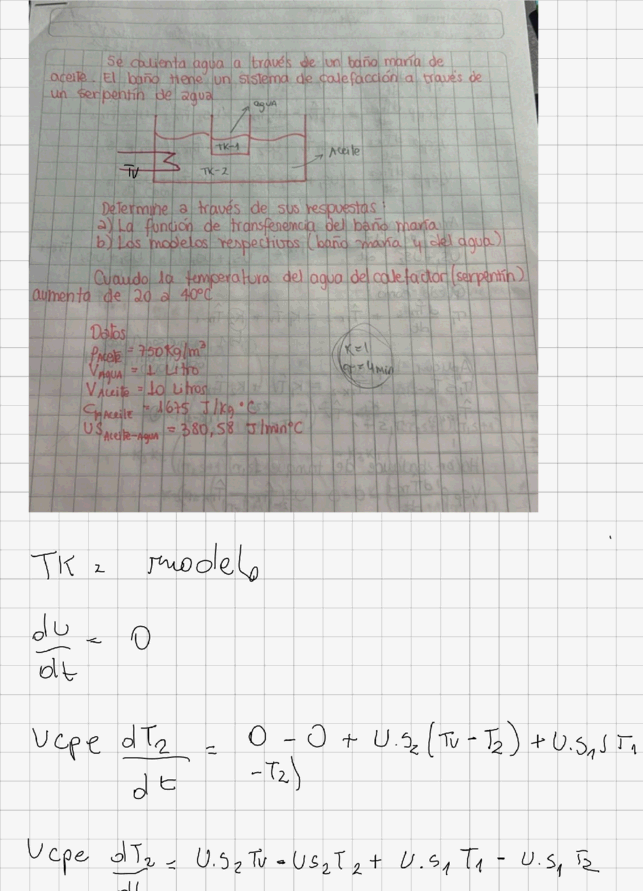 Se calienta agua a través de un baño maría de
aceite. El baño tiene un sistema de calefacción a través de
un serpentín de agua
agua
TK-1
Aceite
TV
TK-2
Determine a través de sus respuestas:
a) La función de transferencia del baño maría
b) Los modelos respectivos (baño maría y del agua)
Cuando la temperatura del agua del calefactor (serpentín)
aumenta de 20 a 40°C
Datos
ρAceite = 750 Kg/m³
VAgua = 1 Litro
VAceite = 10 Litros
CpAceite = 1675 J/kg°C
USAceite-Agua = 380,58 J/min°C
K=1
= 4 min
TK 2 modelo
dU/dt = 0
Vcpe dT2/dt = 0 - 0 + U.S2 (Tv - T2) + U.S1 (T1
- T2)
Vcpe dT2/dt = U.S2 Tv - US2 T2 + U.S1 T1 - U.S1 T2